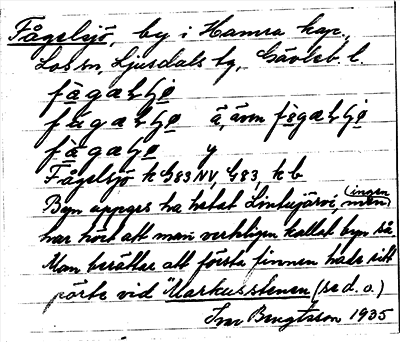 Fågelsjö, by i Hamra kap.,
Los sn, Ljusdals tg, Gävleb. l.
ä, även
y
Fågelsjö k G83 NV, G83, k b
Byn uppges ha hetat Lintujärvi, men (ingen)
har hört att man verkligen kallat byn så.
Man berättar att första finnen hade sitt
pörte vid "Markusstenen (se d. o.)
Ivar Bengtsson 1935